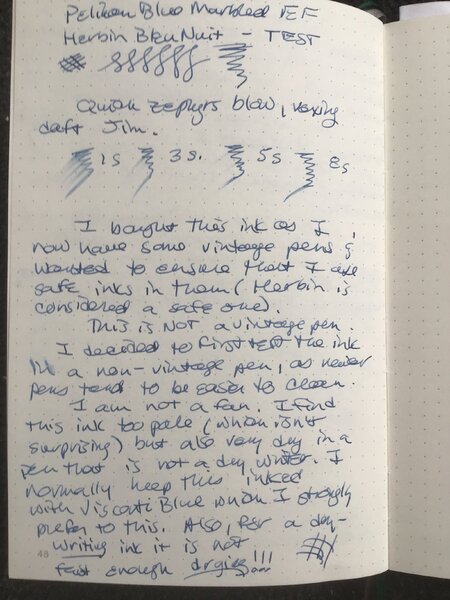 Pelikan Blue Marbled EF
Herbin Bleu Nuit - TEST
Quick zephyrs blow, vexing
daft Jim.
1s 3s. 5s 8s
I bought this ink as I
now have some vintage pens &
wanted to ensure that I use
safe inks in them (Herbin is
considered a safe one).
This is NOT a vintage pen.
I decided to first test the ink
in a non-vintage pen, as newer
pens tend to be easier to clean.
I am not a fan. I find
this ink too pale (which isn't
surprising) but also very dry in a
pen that is not a dry writer. I
normally keep this inked
with Visconti Blue which I strongly
prefer to this. Also, for a dry-
writing ink it is not
fast enough drying!!!
48